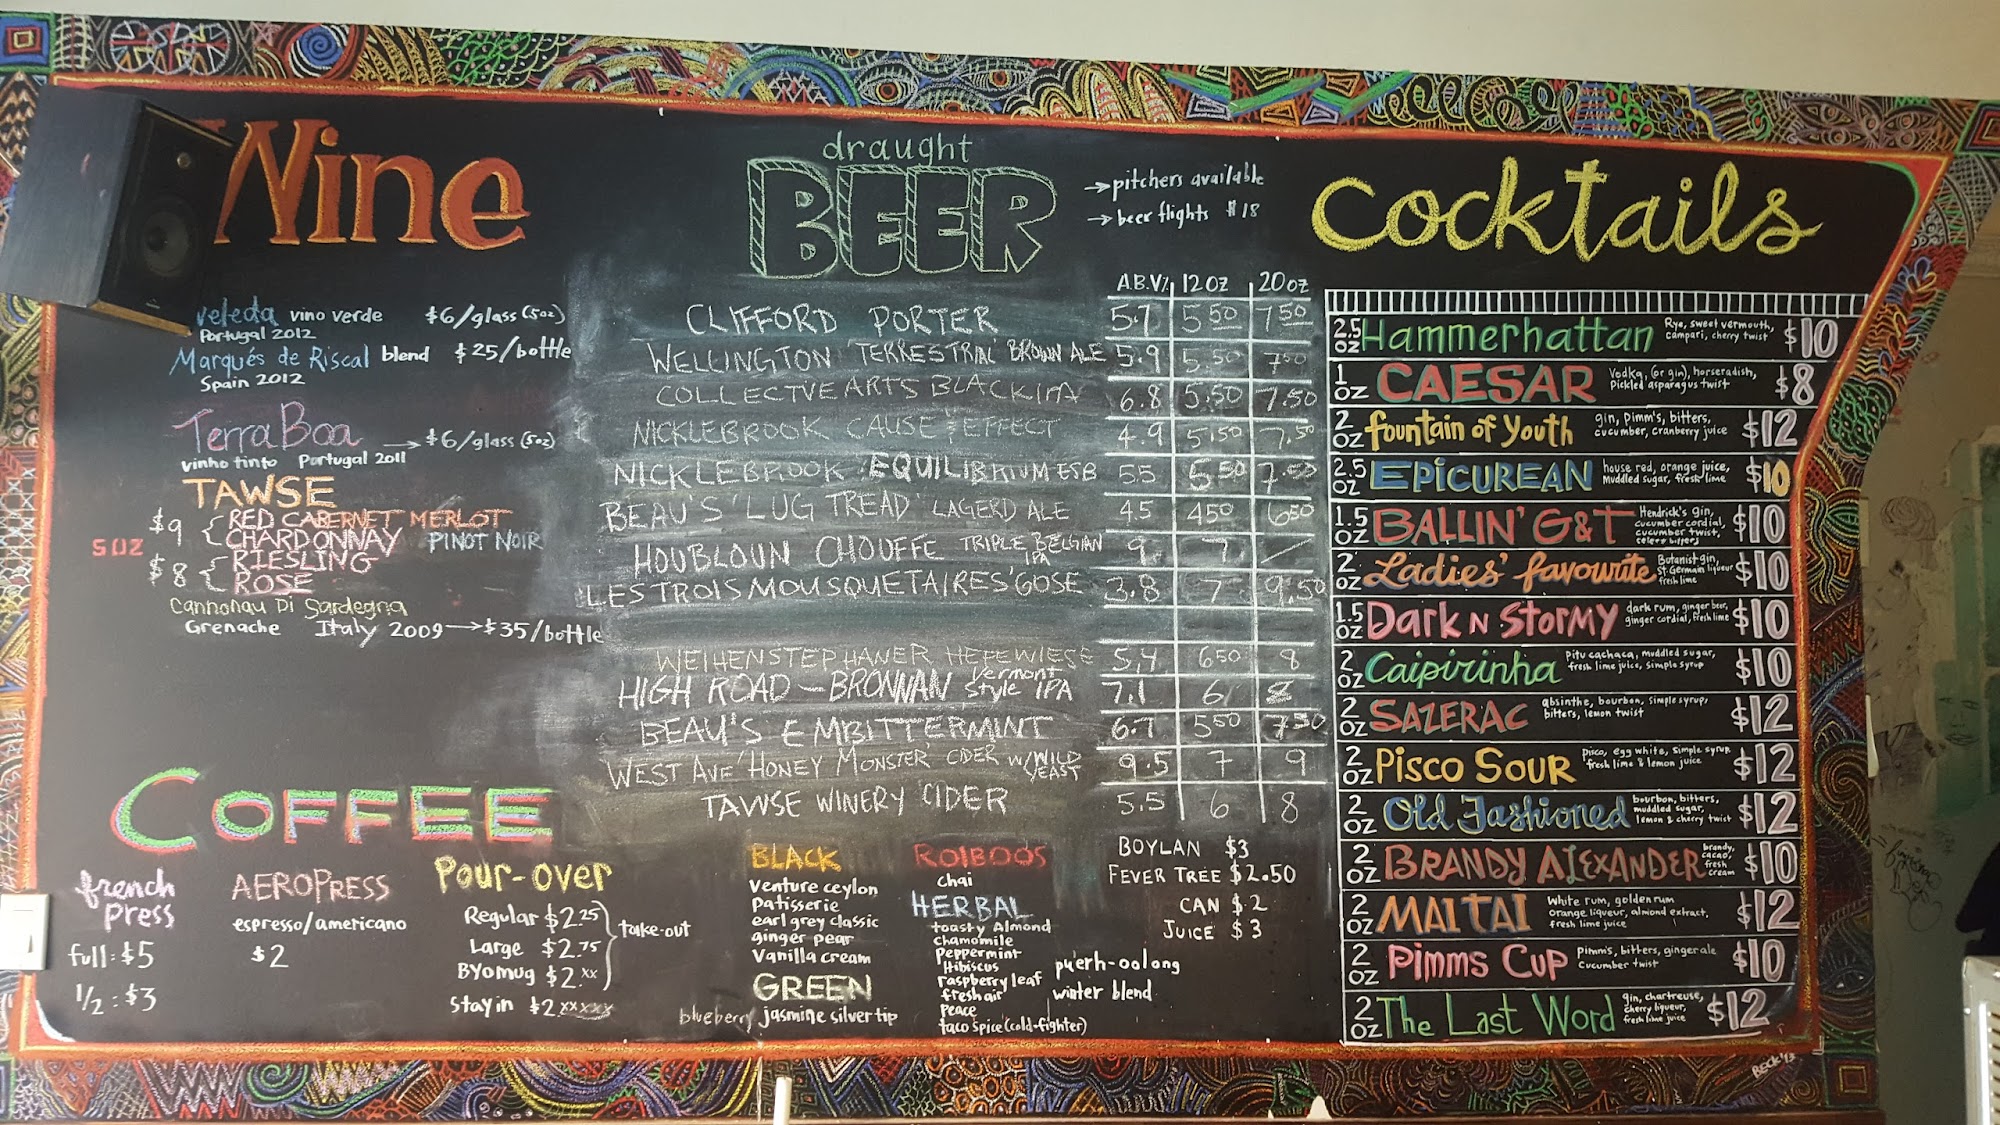 Wine
veleda vino verde $6/glass (5oz)
Portugal 2012
Marqués de Riscal blend $25/bottle
Spain 2012
Terra Boa → $6/glass (5oz)
vinho tinto Portugal 2011
TAWSE
5 OZ
$9 { RED CABERNET MERLOT
CHARDONNAY PINOT NOIR
$8 { RIESLING
ROSE
Cannonau Di Sardegna
Grenache Italy 2009 → $35/bottle
COFFEE
french press
full: $5
1/2: $3
AEROPRESS
espresso/americano
$2
Pour-over
Regular $2.25
Large $2.75
BYOmug $2.xx
} take-out
Stay in $2.xxxxx
draught
BEER
→ pitchers available
→ beer flights $18
A.B.V% 12 oz 20 oz
CLIFFORD PORTER 5.7 5.50 7.50
WELLINGTON 'TERRESTRIAL' BROWN ALE 5.9 5.50 7.50
COLLECTVE ARTS BLACK IPA 6.8 5.50 7.50
NICKLEBROOK CAUSE & EFFECT 4.9 5.50 7.50
NICKLEBROOK EQUILIBRIUM ESB 5.5 6.50 7.50
BEAU'S 'LUG TREAD' LAGERD ALE 4.5 4.50 6.50
HOUBLOUN CHOUFFE TRIPLE BELGIAN IPA 9 7 /
LES TROIS MOUSQUETAIRES 'GOSE 3.8 7 9.50
WEIHENSTEPHANER HEFEWIESE 5.4 6.50 8
HIGH ROAD - BRONNAN Vermont Style IPA 7.1 6 8
BEAU'S EMBITTERMINT 6.7 5.50 7.50
WEST AVE 'HONEY MONSTER' CIDER W/WILD YEAST 9.5 7 9
TAWSE WINERY CIDER 5.5 6 8
BLACK
Venture ceylon
Patisserie
earl grey classic
ginger pear
Vanilla cream
GREEN
blueberry jasmine silver tip
ROIBOOS
chai
HERBAL
toasty Almond
chamomile
Peppermint
Hibiscus
raspberry leaf
fresh air
Peace
taco spice (cold-fighter)
puerh-oolong
winter blend
BOYLAN $3
FEVER TREE $2.50
CAN $2
JUICE $3
Cocktails
2.5 OZ Hammerhattan Rye, sweet vermouth, campari, cherry twist $10
1 OZ CAESAR Vodka, (or gin), horseradish, Pickled asparagus twist $8
2 OZ fountain of Youth gin, pimm's, bitters, cucumber, cranberry juice $12
2.5 OZ EPICUREAN house red, orange juice, Muddled sugar, fresh lime $10
1.5 OZ BALLIN' G&T Hendrick's gin, cucumber cordial, cucumber twist, celery bitters $10
2 OZ Ladies' favourite Botanist gin, St. Germain liqueur fresh lime $10
1.5 OZ Dark N Stormy dark rum, ginger beer, ginger cordial, fresh lime $10
2 OZ Caipirinha Pitu cachaca, muddled sugar, fresh lime juice, simple syrup $10
2 OZ SAZERAC absinthe, bourbon, simple syrup, bitters, lemon twist $12
2 OZ Pisco Sour pisco, egg white, simple syrup, fresh lime & lemon juice $12
2 OZ Old Fashioned bourbon, bitters, muddled sugar, lemon & cherry twist $12
2 OZ BRANDY ALEXANDER brandy, cacao, fresh cream $10
2 OZ MAI TAI White rum, golden rum orange liqueur, almond extract, fresh lime juice $12
2 OZ Pimms Cup Pimm's, bitters, ginger ale Cucumber twist $10
2 OZ The Last Word gin, chartreuse, cherry liqueur, fresh lime juice $12
BECK '13